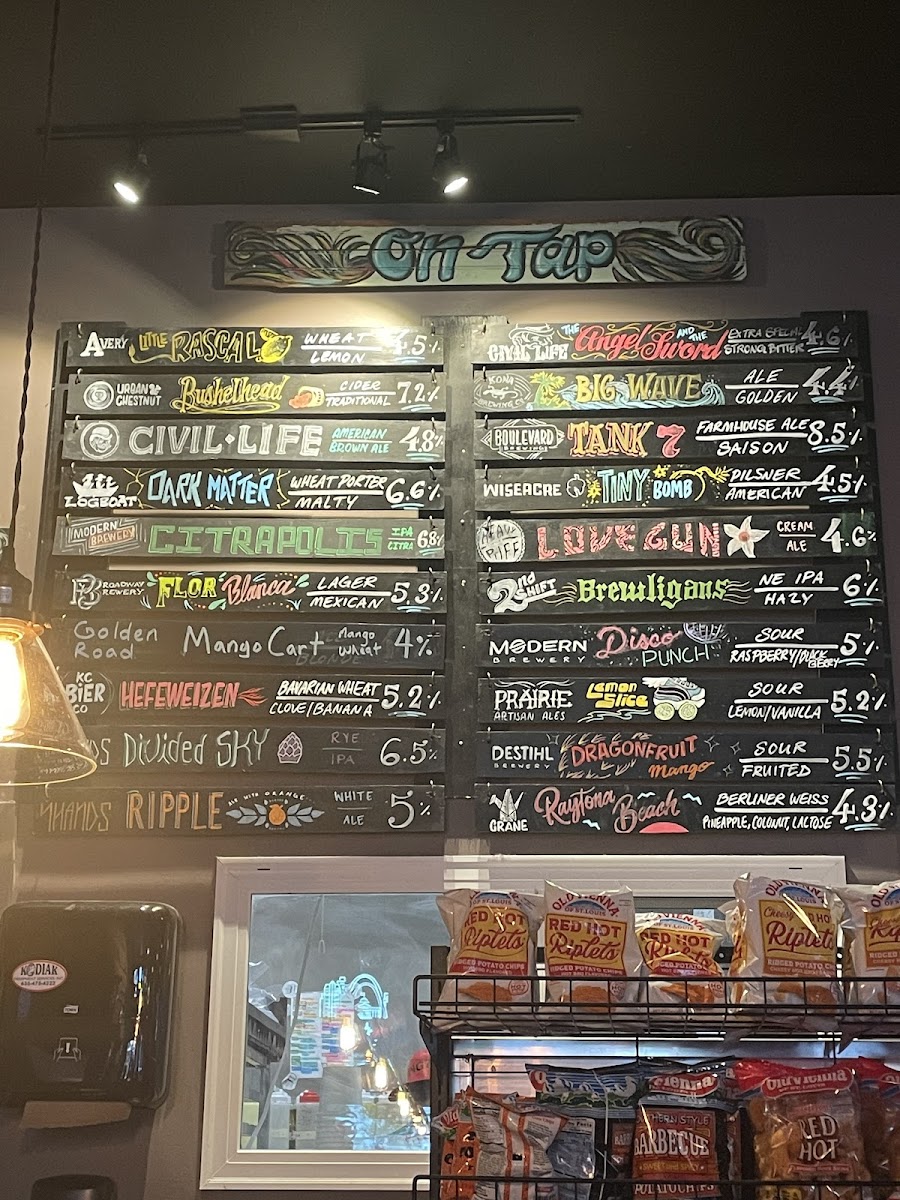 On-Tap
AVERY LITTLE RASCAL WHEAT LEMON 4.5%
URBAN CHESTNUT Bushelhead CIDER TRADITIONAL 7.2%
CIVIL·LIFE AMERICAN BROWN ALE 4.8%
LOGBOAT DARK MATTER WHEAT PORTER MALTY 6.6%
MODERN BREWERY CITRAPOLIS IPA CITRA 6.8%
BROADWAY BREWERY FLOR Blanca LAGER MEXICAN 5.3%
Golden Road Mango Cart Mango Wheat 4%
KC BIER CO HEFEWEIZEN BAVARIAN WHEAT CLOVE/BANANA 5.2%
Divided SKY RYE IPA 6.5%
4HANDS RIPPLE ALE WITH ORANGE WHITE ALE 5%
CIVIL LIFE THE Angel AND THE Sword EXTRA SPECIAL STRONG BITTER 4.6%
KONA BREWING CO BIG WAVE ALE GOLDEN 4.4%
BOULEVARD BREWING TANK 7 FARMHOUSE ALE SAISON 8.5%
WISEACRE TINY BOMB PILSNER AMERICAN 4.5%
HEAVY RIFF LOVEGUN CREAM ALE 4.6%
2ND SHIFT Brewligans NE IPA HAZY 6%
MODERN BREWERY Disco PUNCH SOUR RASPBERRY/BLACKBERRY 5%
PRAIRIE ARTISAN ALES Lemon Slice SOUR LEMON/VANILLA 5.2%
DESTIHL BREWERY DRAGONFRUIT mango SOUR FRUITED 5.5%
CRANE Raytona Beach BERLINER WEISS PINEAPPLE, COCONUT, LACTOSE 4.3%
KODIAK
OLD VIENNA OF ST. LOUIS RED HOT Riplets RIDGED POTATO CHIPS
OLD VIENNA OF ST. LOUIS RED HOT Riplets RIDGED POTATO CHIPS
OLD VIENNA RED HOT Riplets RIDGED POTATO CHIPS
Cheesy RED HOT Riplets RIDGED POTATO CHIPS
RIDGED
Vienna
SOUTHERN STYLE
BARBECUE
SWEET AND SPICY
POTATO CHIPS
Old Vienna
RED
HOT